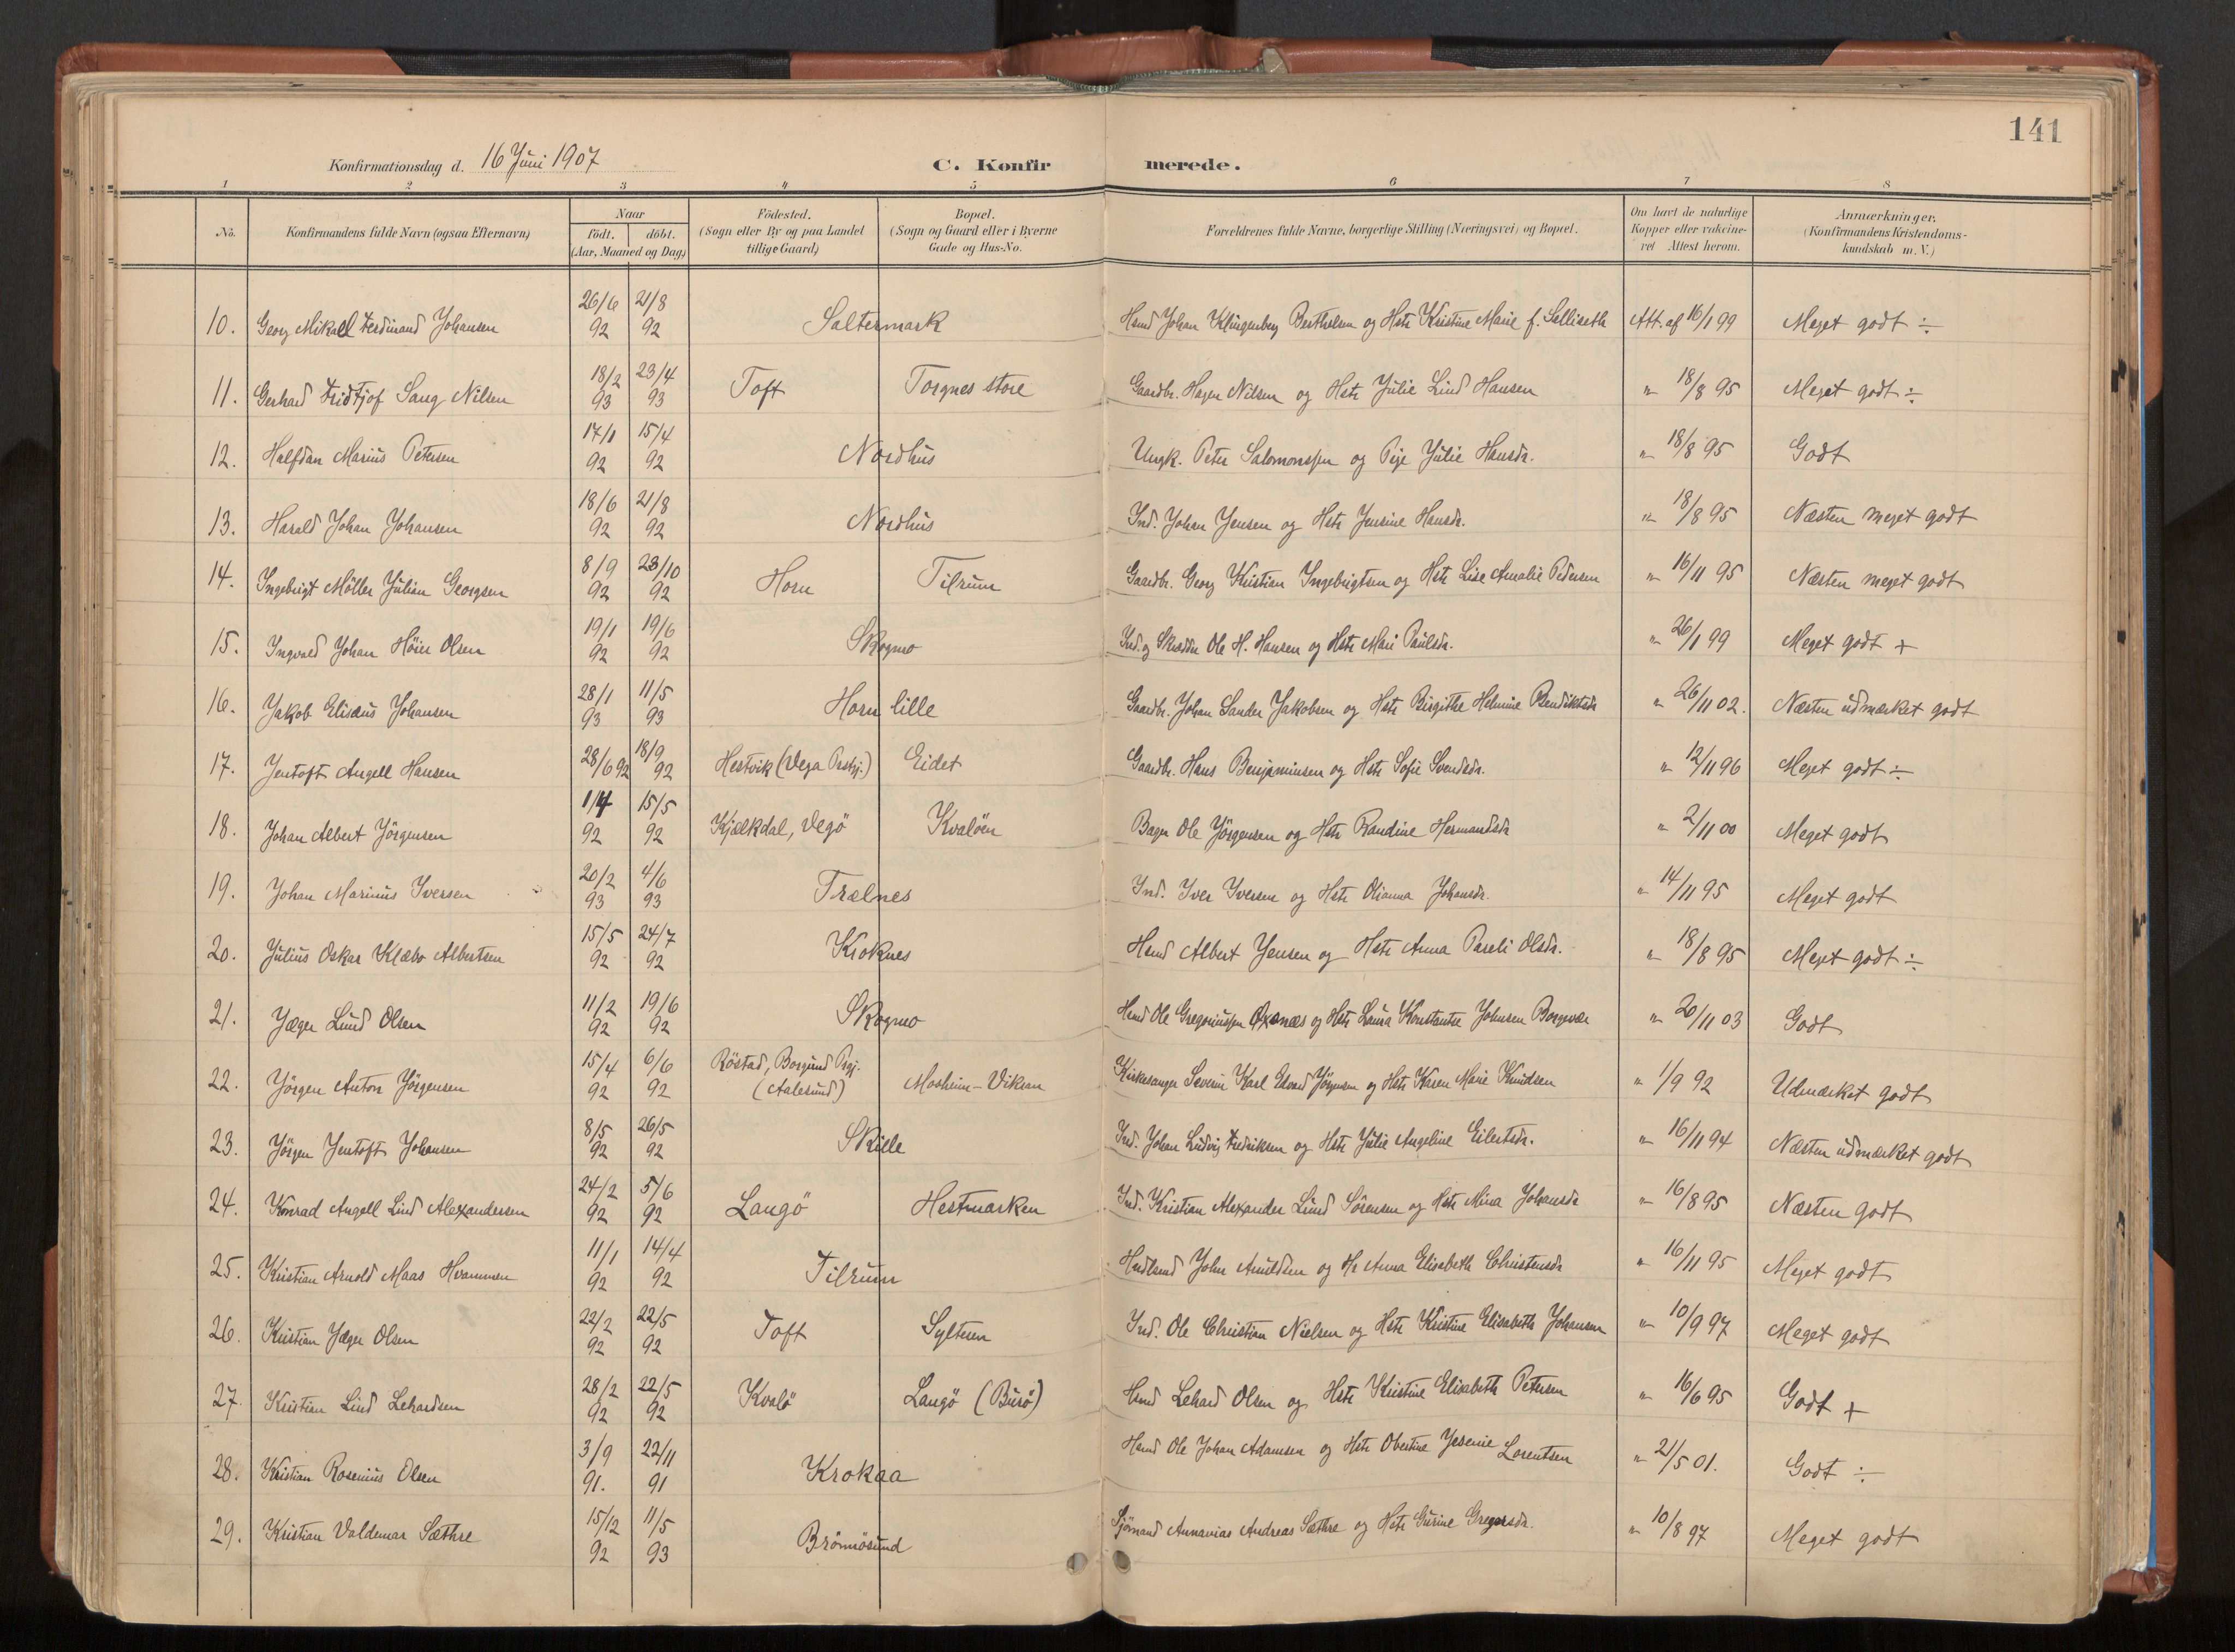 141
Konfirmationsdag d. 16 Juni 1907
C. Konfirmerede.
1 2 3 4 5 6 7 8
No. Konfirmandens fulde Navn (ogsaa Efternavn) Naar födt. döbt. (Aar, Maaned og Dag.) Födested. (Sogn eller By og paa Landet tillige Gaard) Bopæl. (Sogn og Gaard eller i Byerne Gade og Hus-No. Forældrenes fulde Navne, borgerlige Stilling (Næringsvei) og Bopæl. Om havt de naturlige Kopper eller vakcineret Attest herom. Anmærkninger. (Konfirmandens Kristendomskundskab m. V.)
10. Georg Mikael Ferdinand Johansen 26/6 92 21/8 92 Saltermark Hmd Johan Klingenberg Berthelsen og Hstr Kristine Marie f. Selliseth Att. af 16/1 99 Meget godt ÷
11. Gerhard Fridtjof Sang Nilsen 18/2 93 23/4 93 Toft Torgnes store Gaardbr. Hagen Nilsen og Hstr Julie Lind Hansen " 18/8 95 Meget godt ÷
12. Halfdan Marius Petersen 17/1 92 15/4 92 Nordhus Ungk. Peter Salomonssen og Pige Julie Hansdr. " 18/8 95 Godt
13. Harald Johan Johansen 18/6 92 21/8 92 Nordhus Ind. Johan Jensen og Hstr Jensine Hansdr. " 18/8 95 Næsten meget godt
14. Ingebrigt Möller Julian Georgsen 8/9 92 23/10 92 Horn Tilrum Gaardbr. Georg Kristian Ingebrigtsen og Hstr Lise Amalie Pedersen " 16/11 95 Næsten meget godt
15. Ingvald Johan Höier Olsen 19/1 92 19/6 92 Skogmo Ind. og Skrædder Ole H. Hansen og Hstr Mari Paulsdr. " 26/1 99 Meget godt +
16. Jakob Elisæus Johansen 28/1 93 11/5 93 Horn lille Gaardbr. Johan Sander Jakobsen og Hstr Birgithe Helmine Bendiktsdr " 26/11 02. Næsten udmærket godt
17. Jentoft Angell Hansen 28/6 92 18/9 92 Hestvik (Vega Prstgj.) Eidet Gaardbr. Hans Benjaminsen og Hstr Sofie Svendsdr. " 12/11 96 Meget godt ÷
18. Johan Albert Jörgensen 1/4 92 15/5 92 Kjælkdal, Vegö Kvalöen Bager Ole Jörgensen og Hstr Randine Hermandsdr " 2/11 00 Meget godt
19. Johan Marinus Iversen 20/2 93 4/6 93 Trælnes Ind. Iver Iversen og Hstr Olianna Johansdr. " 14/11 95 Meget godt
20. Julius Oskar Klæbo Albertsen 15/5 92 24/7 92 Kroknes Hmd Albert Jensen og Hstr Anna Pareli Olsdr. " 18/8 95 Meget godt ÷
21. Jæger Lund Olsen 11/2 92 19/6 92 Skogmo Hmd Ole Gregoriussen Oxsnæs og Hstr Laura Konstantse Johnsen Borgvær " 20/11 03 Godt
22. Jörgen Anton Jörgensen 15/4 92 6/6 92 Röstad, Borgund Prgj. (Aalesund) Mosheim-Vikran Kirkesanger Severin Karl Edvard Jörgensen og Hstr Karen Marie Knudsen " 1/9 92 Udmærket godt
23. Jörgen Jentoft Johansen 8/5 92 26/5 92 Skille Ind. Johan Ludvig Fredriksen og Hstr Julie Angeline Eilertsdr. " 16/11 94 Næsten udmærket godt
24. Konrad Angell Lind Alexandersen 24/2 92 5/6 92 Langö Hestmarken Ind. Kristian Alexander Lund Sörensen og Hstr Mina Johansdr " 16/8 95 Næsten godt
25. Kristian Arnold Maas Hvammen 11/1 92 14/4 92 Tilrum John Amundsen og Hr Anna Elisabeth Christensdr " 16/11 95 Meget godt
26. Kristian Jæger Olsen 22/2 92 22/5 92 Toft Sylteren Ind. Ole Christian Nielsen og Hstr Kristine Elisabeth Johansen " 10/9 97 Meget godt
27. Kristian Lind Lehardsen 28/2 92 22/5 92 Kvalö Langö (Burö) Hmd Lehard Olsen og Hstr Kristine Elisabeth Petersen " 16/6 95 Godt +
28. Kristian Rosenius Olsen 3/9 91. 22/11 91 Krokaa Hmd Ole Johan Adamsen og Hstr Obertine Jesenie Lorentsen " 21/5 01. Godt ÷
29. Kristian Valdemar Sæthre 15/12 92 11/5 93 Brönnösund Sjömand Annanias Andreas Sæthre og Hstr Gurine Gregersdr. " 10/8 97 Meget godt